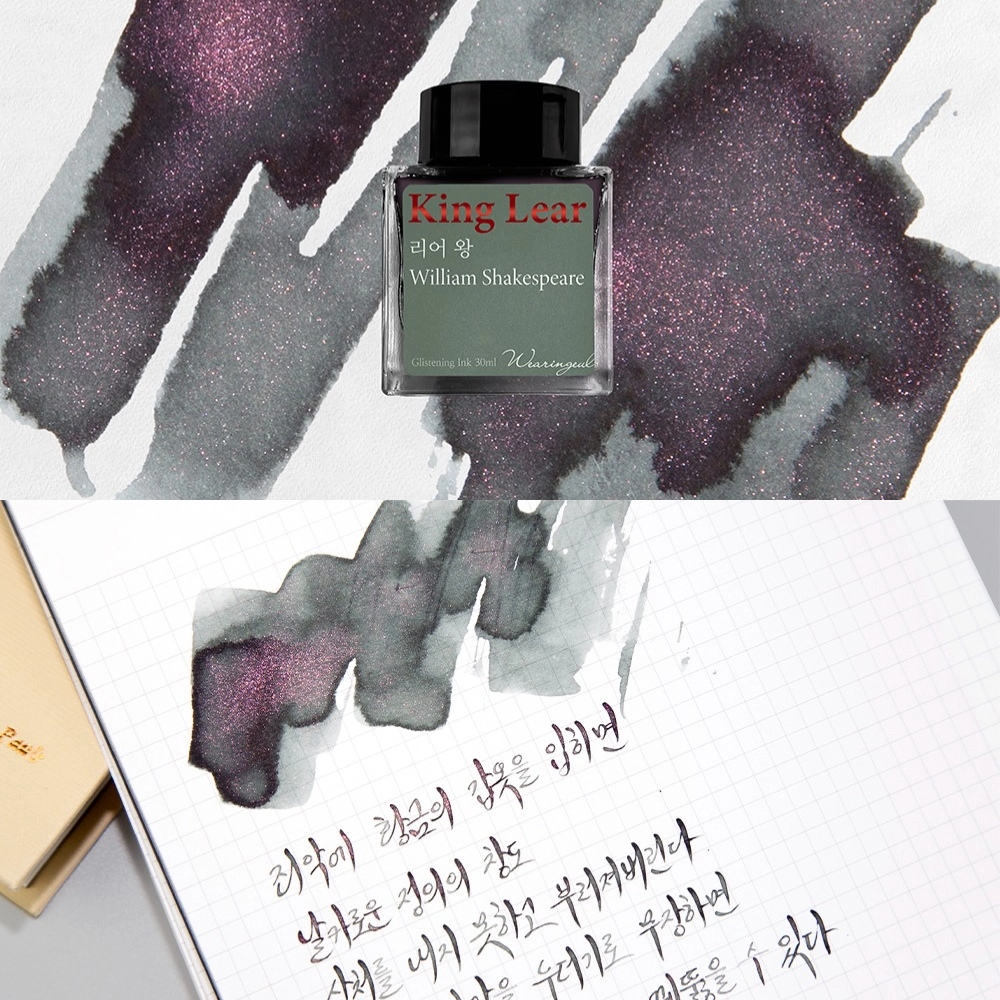 King Lear
리어 왕
William Shakespeare
Glistening Ink 30ml Wearingeul
죄악에 황금의 갑옷을 입히면
날카로운 정의의 창도
상처를 내지 못하고 부러져버린다.
누더기로 무장하면
꿰뚫을 수 있다